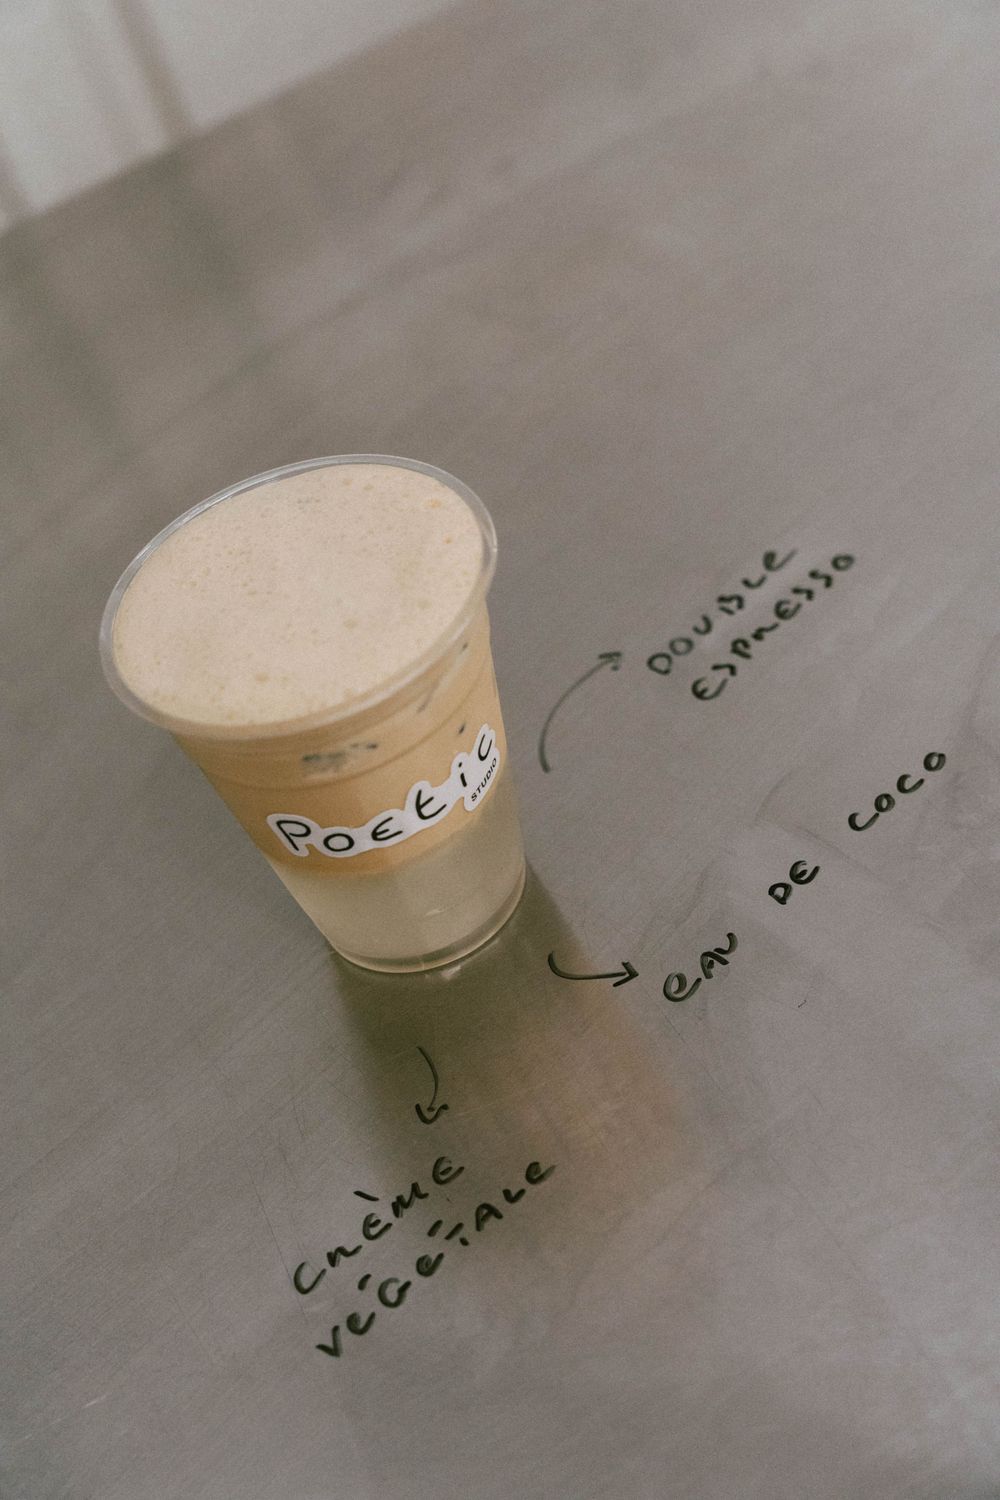 Poetic
STUDIO
DOUBLE
ESPRESSO
EAU DE COCO
CRÈME
VÉGÉTALE